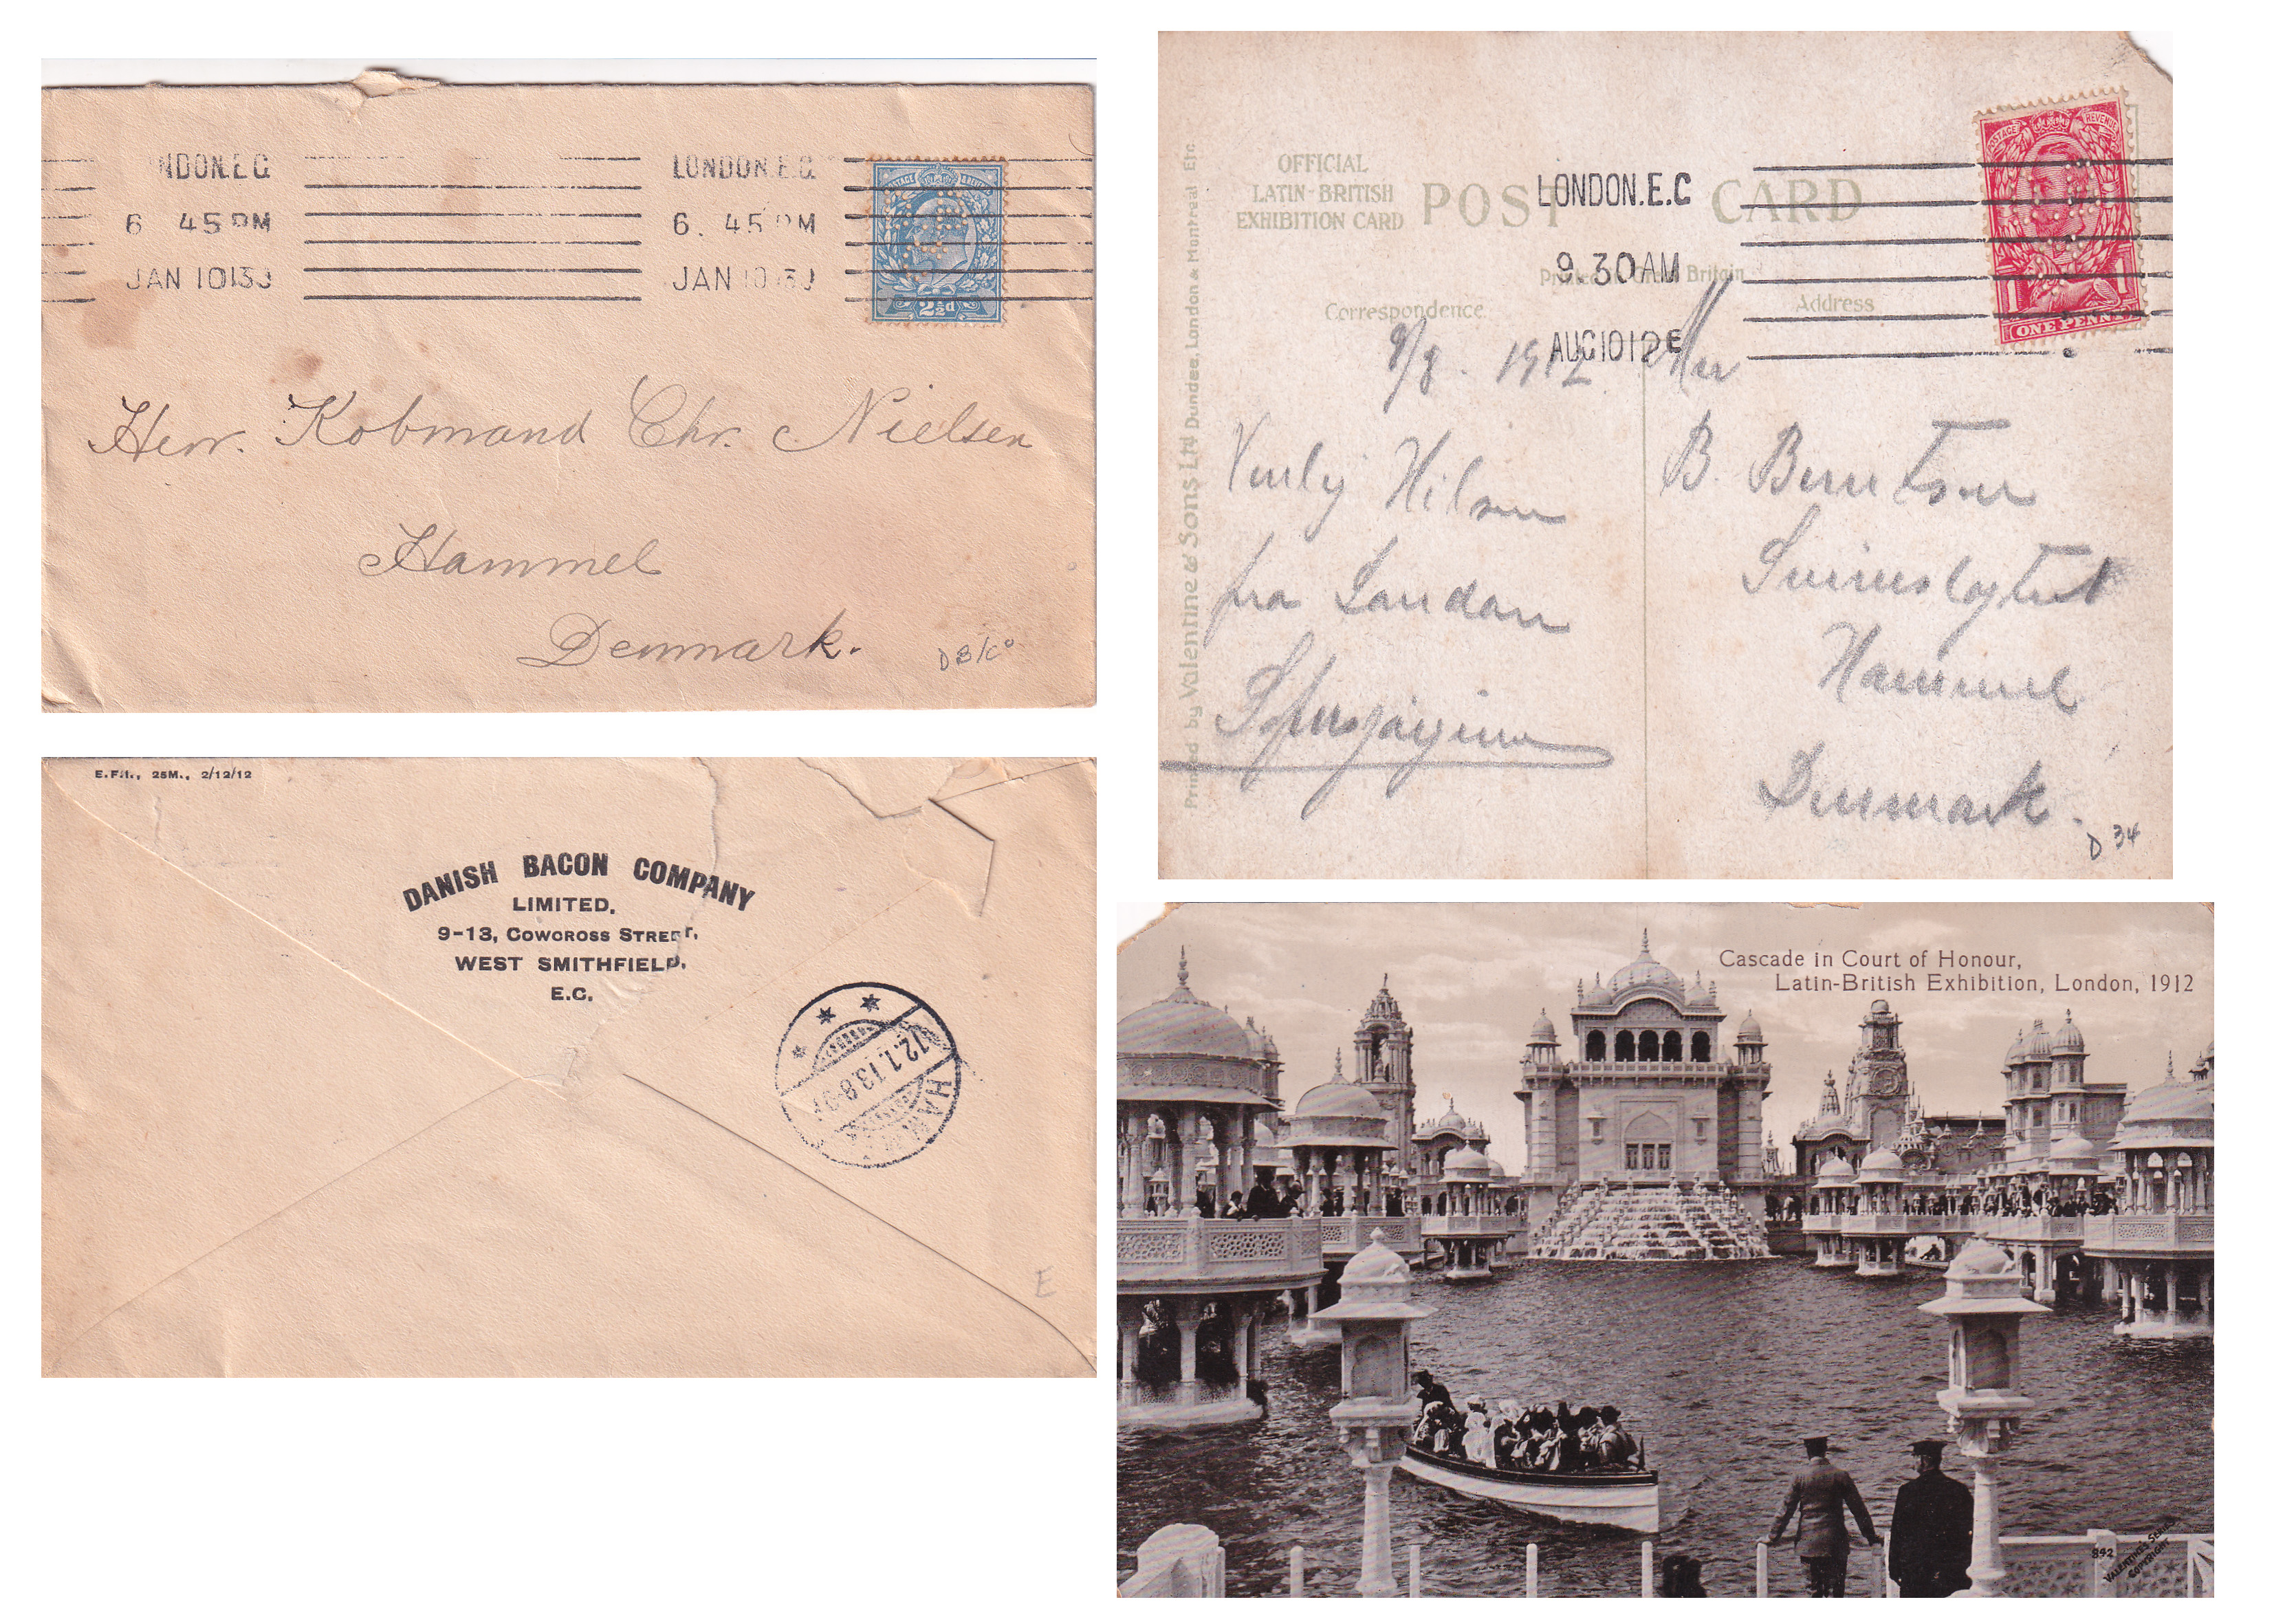 NDON.E.C
6 45 PM
JAN 10 13
LONDON.E.C.
6. 45 PM
JAN 10 13
POSTAGE
2½d
Herr. Kobmand Chr. Nielsen
Hammel
Denmark.
DB/Co
E.F.H., 25M., 2/12/12
DANISH BACON COMPANY
LIMITED,
9-13, COWCROSS STREET,
WEST SMITHFIELD,
E.C.
12.1.13.8-9
HAMMEL
OFFICIAL
LATIN-BRITISH
EXHIBITION CARD
POST CARD
Printed in Great Britain
Correspondence
Address
LONDON.E.C
9.30AM
AUG 10 12 E
POSTAGE REVENUE
1 1
ONE PENNY
Printed by Valentine & Sons Ltd Dundee, London & Montreal Etc.
9/8. 1912
Venlig Hilsen
fra London
Herr
B. Berntsen
Svineslagteri
Hammel
Denmark.
D 34
Cascade in Court of Honour,
Latin-British Exhibition, London, 1912
842
VALENTINES SERIES
COPYRIGHT